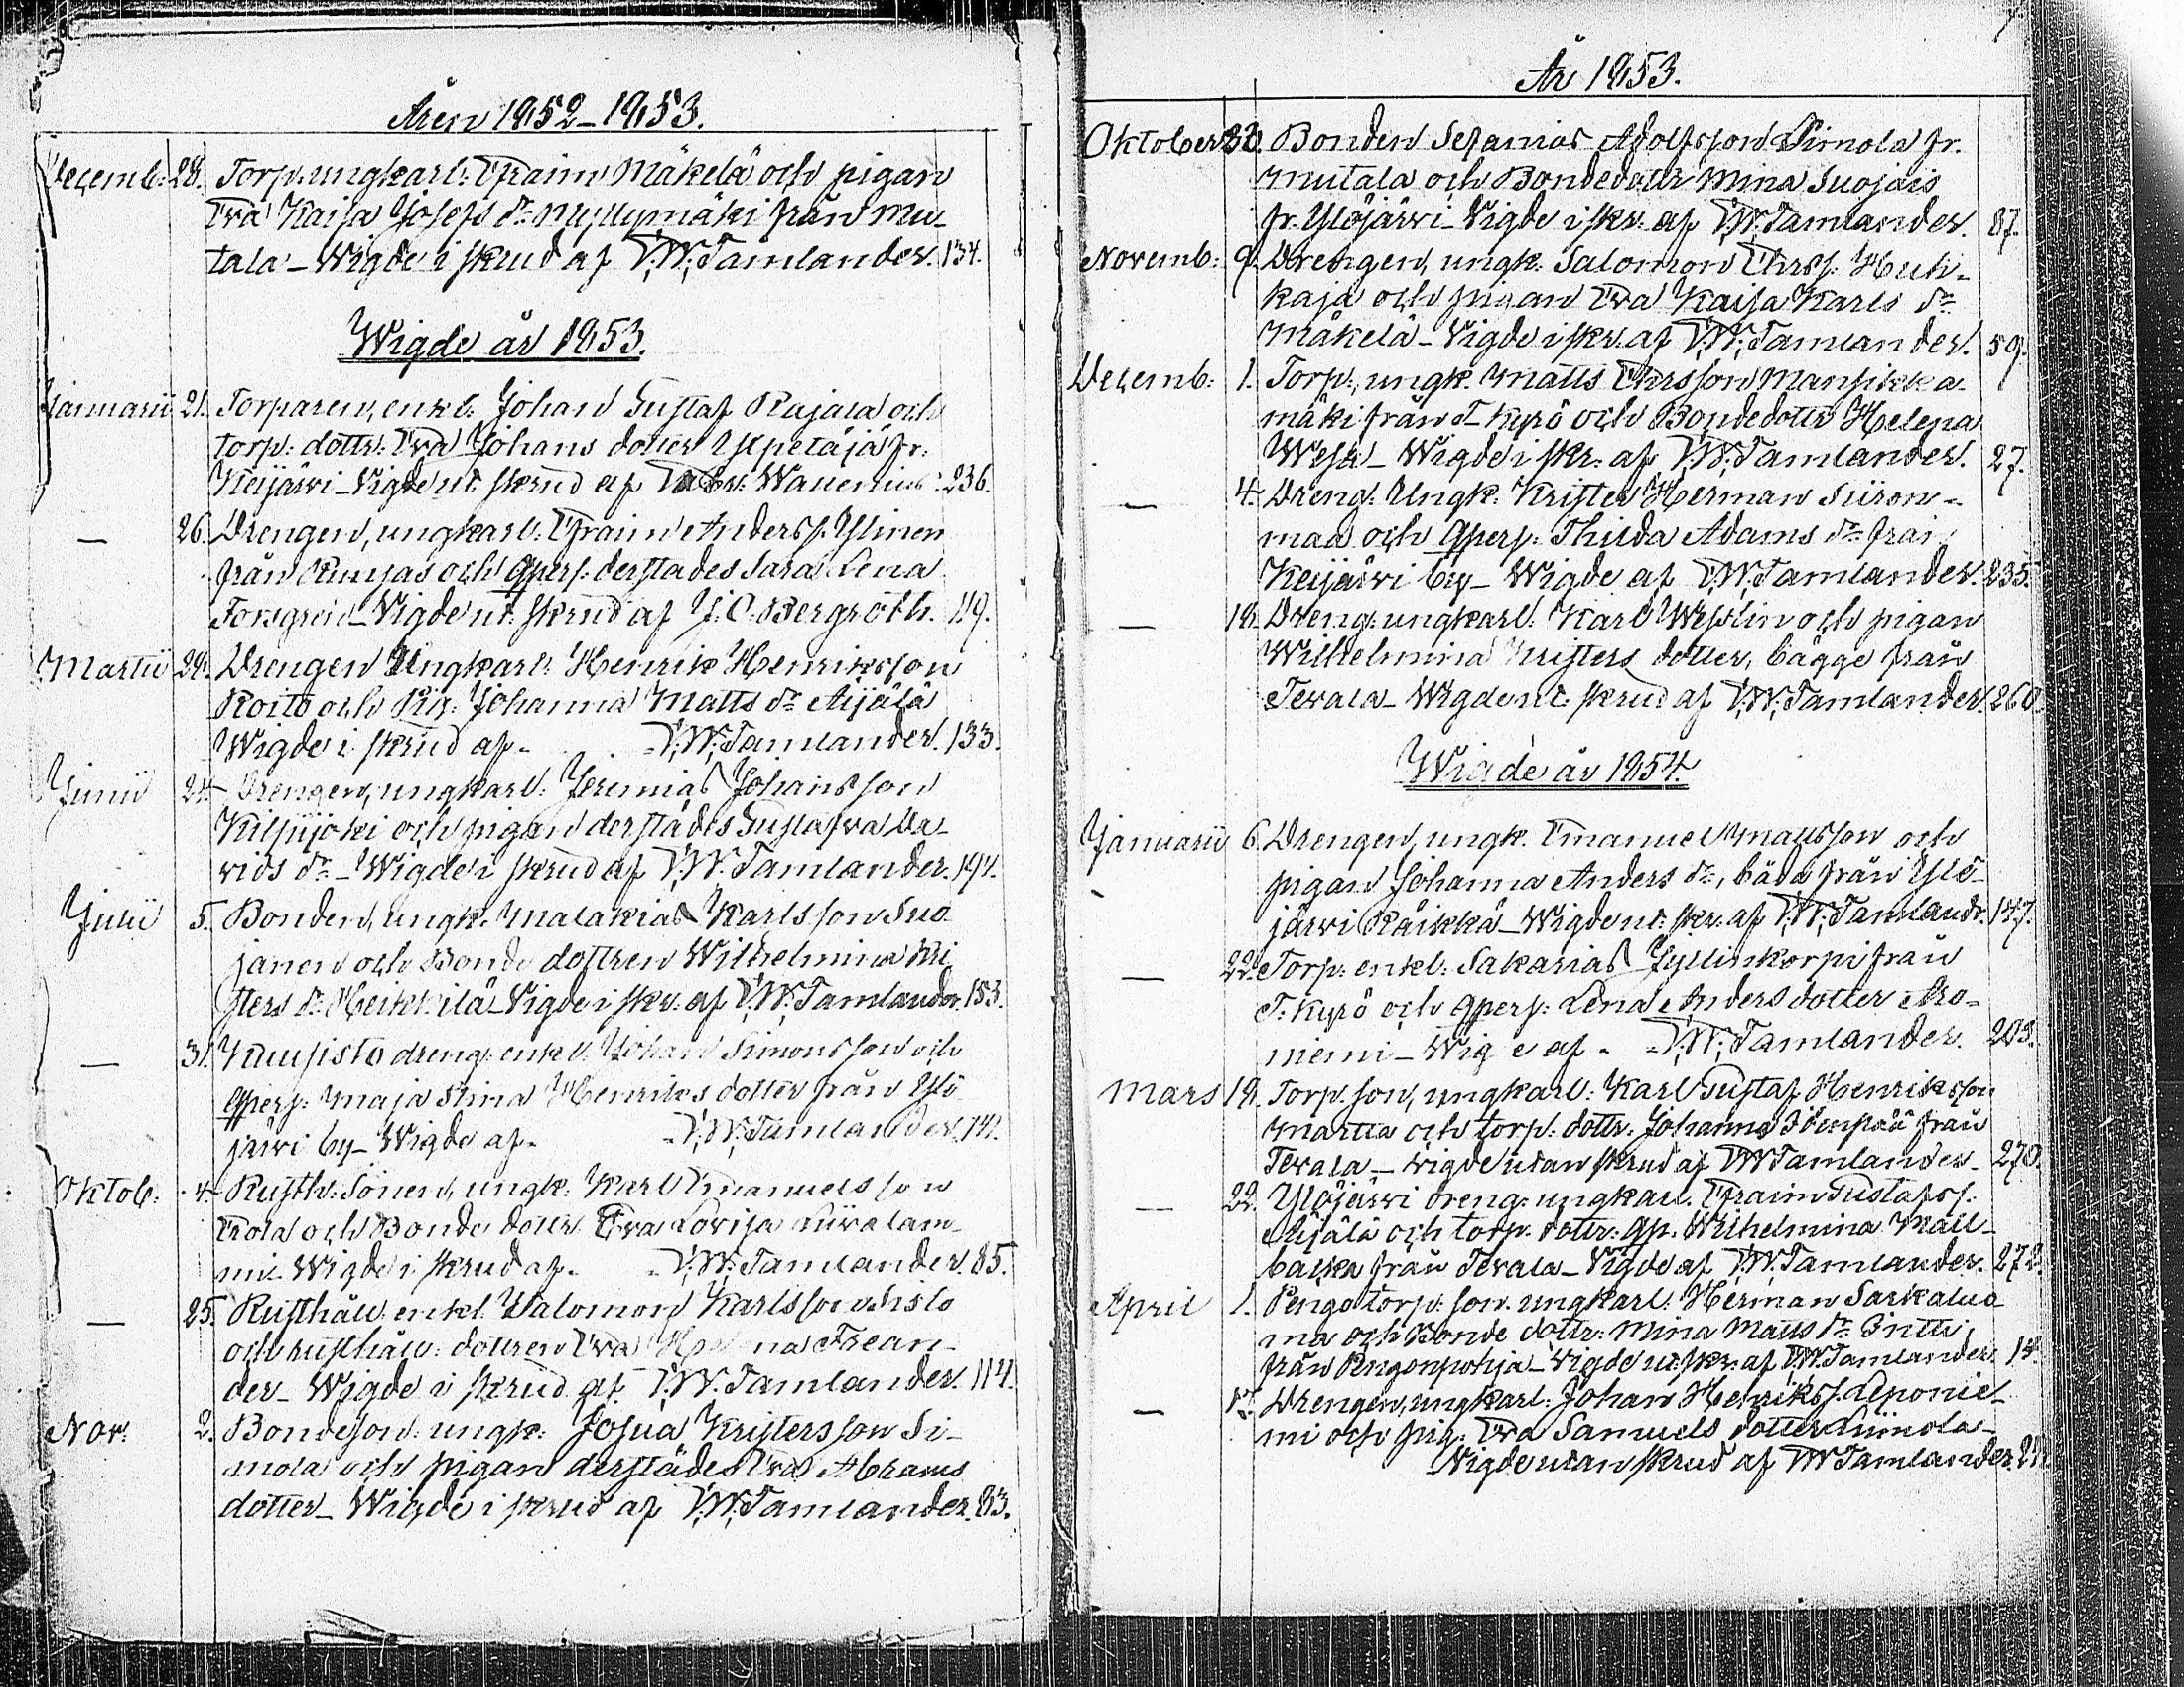 Åren 1852-1853.
Decemb: 28. Torp. ungkarl: Efraim Mäkelä och pigan
Eva Kaisa Josefs dr Myllymäki från Mu-
tala - Wigde i skrud af V.W. Tamlander. 134.
Wigde år 1853.
Januarii 21. Torparen, enkl: Johan Gustaf Rajala och
torp: dottr: Eva Johans dotter Ylipetäjä fr:
Keijärvi - Vigde ut. skrud af Wanenius 236.
— 26. Drengen, ungkarl: Efraim Anders s. Ylinen
från Runsas och qpers: derstädes Sara Lena
Forsgren - Vigde ut. skrud af J. C. Bergroth. 119.
Martii 28. Drengen Ungkarl: Henrik Henriksson
Roito och Pig: Johanna Matts dr Äijälä
Wigde i skrud af - - V.W. Tamlander. 133.
Junii 24. Drengen, ungkarl: Jeremias Johansson
Kiljujoki och pigan derstädes Gustafva Da-
vids dr - Wigde i skrud af V.W. Tamlander. 194.
Julii 5. Bonden, ungk. Malakias Karlsson Suo
janen och Bonde dottren Wilhelmina Kri
sters dr Heikkilä - Vigde i skr. af V.W. Tamlander. 153.
— 31. Kuusisto dreng: enkl: Johan Simonsson och
qpers: Maja Stina Henriks dotter från Ylö
järvi by - Wigde af - - V.W. Tamlander. 142.
Oktob: 4. Rusth: Sonen, ungk: Karl Emanuelsson
Erola och Bonde dottr. Eva Lovisa Liivalam-
mi - Wigde i skrud af - - V.W. Tamlander. 85.
— 25. Rusthåll: enkl: Salomon Karlsson Sisto
och rusthåll: dottren Eva Helena Frean-
der - Wigde i skrud af V.W. Tamlander. 114.
Nov: 2. Bondeson: ungk: Josua Kristersson Si-
mola och pigan derstädes Eva Abrams
dotter - Wigde i skrud af V.W. Tamlander. 83.
År 1853.
Oktober Bonden Sefanias Adolfsson Simola fr.
Mutala och Bondedottr Mina Suojais
fr. Ylöjärvi - Vigde i skr. af V.W. Tamlander. 87.
Novemb: 9. Drengen, ungk: Salomon Ehrss. Huh-
kaja och pigan Eva Kaisa Karls dr
Mäkelä - Vigde i skr. af V.W. Tamlander. 59.
Decemb: 1. Torp:, ungk. Matts Ehrsson Mansikka-
mäki från T. Kyrö och Bondedottr Helena
Wesa - Wigde i skr: af V.W. Tamlander. 27.
— 4. Dreng: Ungk: Krister Herman Siiron-
maa och qpers: Thilda Adams dr från
Keijärvi by - Wigde af V.W. Tamlander. 235.
— 18. Dreng: ungkarl: Karl Wesslin och pigan
Wilhelmina Kristers dotter, bägge från
Tevala - Wigde ut. skrud af V.W. Tamlander. 260.
Wigde år 1854.
Januarii 6. Drengen, ungk. Emanuel Mattsson och
pigan Johanna Anders dr, båda från Ylö-
järvi Räikkä - Wigde ut. skr. af V.W. Tamlandr. 147.
— 22. Torp: enkl: Sakarias Jyllinkorpi från
T. Kyrö och qpers: Lena Anders dotter Aro-
niemi - Wigde af - - V.W. Tamlander. 203.
Mars 18. Torp. son, ungkarl: Karl Gustaf Henriksson
Martta och torp: dottr: Johanna från
Tevala - vigde utan skrud af VW Tamlander. 270.
— 22. Ylöjärvi dreng: ungkarl. Efraim Gustafs s.
Äijälä och torp. dottr: qp. Wilhelmina Mäll-
backa från Tevala - Vigde af V.W. Tamlander. 272.
April 1. Pengo torp: son. ungkarl: Herman Sarkaluo
ma och Bonde dottr: Mina Matts dr Pritti
från Pengonpohja - Vigde ut. skr. af VW Tamlander 14.
— Drengen, ungkarl: Johan Henrikss. Leponie-
mi och pig: Eva Samuels dotter Liinola -
Vigde utan skrud af VW Tamlander.